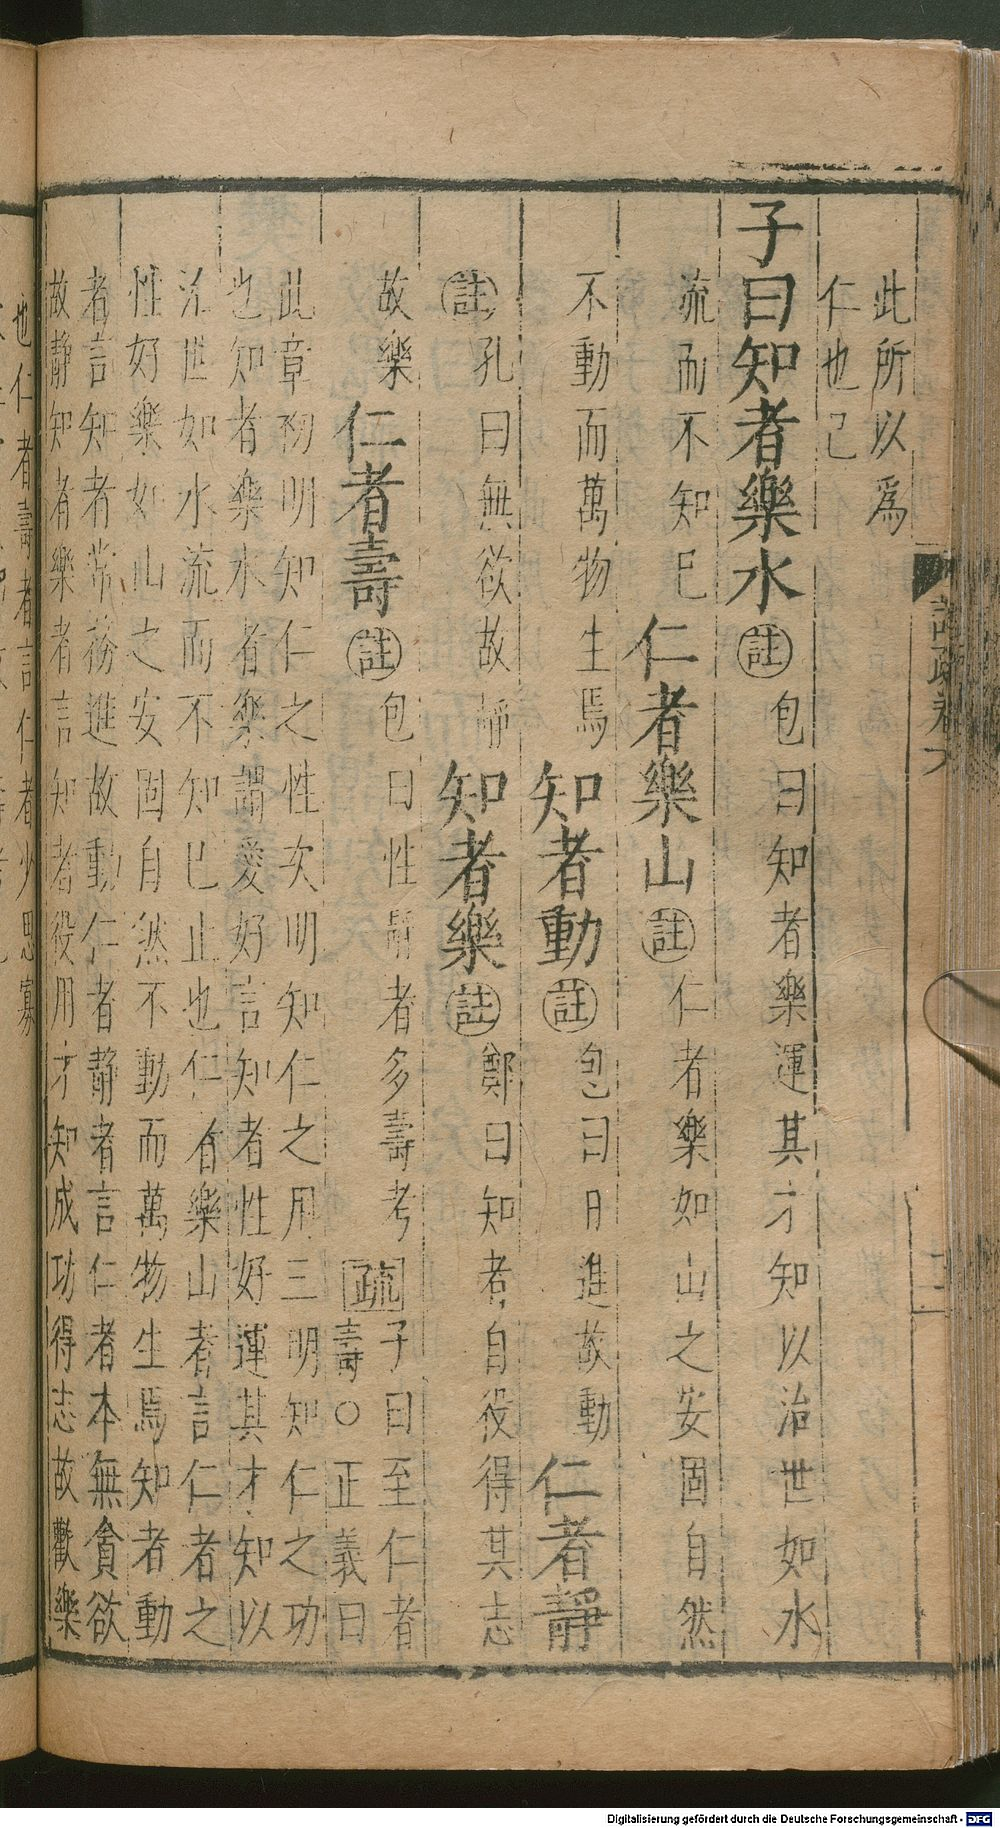 此所以爲
仁也已
子曰知者樂水註包曰知者樂運其才知以治世如水
流而不知已 仁者樂山註仁者樂如山之安固自然
不動而萬物生焉 知者動註包曰日進故動 仁者靜
註孔曰無欲故靜 知者樂註鄭曰知者自役得其志
故樂 仁者壽註包曰性靜者多壽考 疏 子曰至仁者
壽○正義曰
此章初明知仁之性次明知仁之用三明知仁之功
也知者樂水者樂謂愛好言知者性好運其才知以
治世如水流而不知已止也仁者樂山者言仁者之
性好樂如山之安固自然不動而萬物生焉知者動
者言知者常務進故動仁者靜者言仁者本無貪欲
故靜知者樂者言知者役用才知成功得志故歡樂
也仁者壽者言仁者少思寡
Digitalisierung gefördert durch die Deutsche Forschungsgemeinschaft - DFG